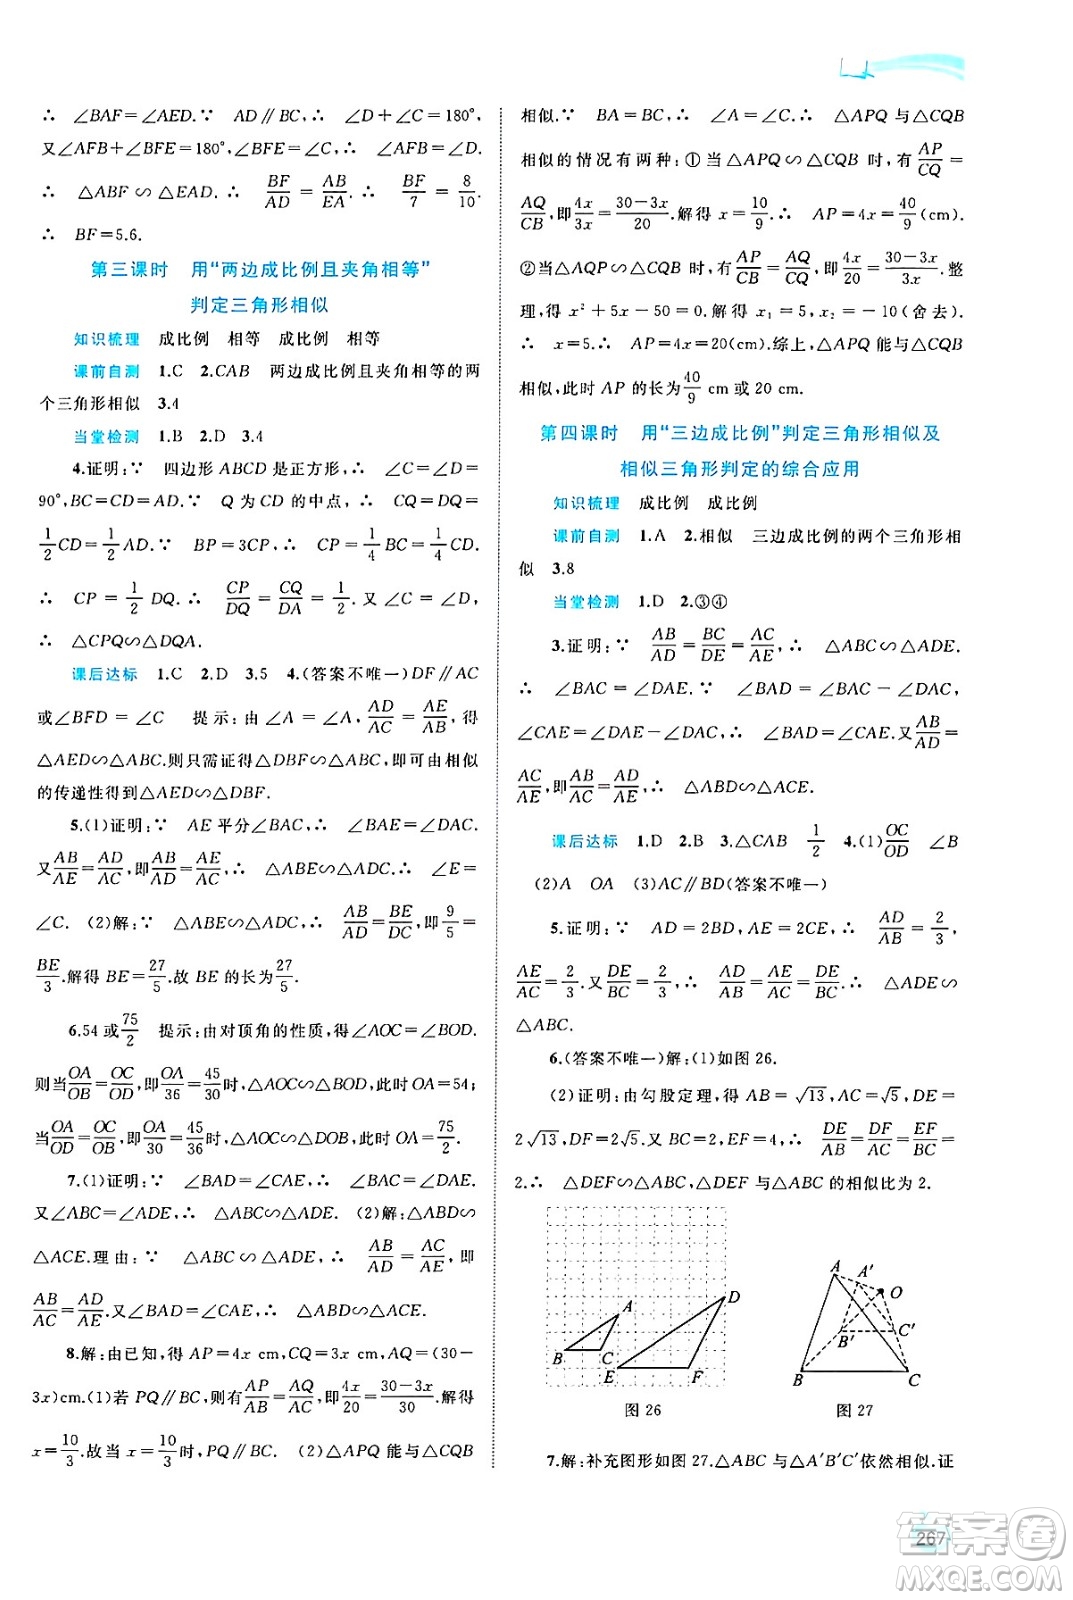 ∴ ∠BAF=∠AED.∵ AD∥BC,∴ ∠D+∠C=180°,
又∠AFB+∠BFE=180°,∠BFE=∠C,∴ ∠AFB=∠D.
∴ △ABF∽△EAD.∴ BF/AD=AB/EA.∴ BF/7=8/10.
∴ BF=5.6.
第三课时 用“两边成比例且夹角相等”
判定三角形相似
知识梳理 成比例 相等 成比例 相等
课前自测 1.C 2.CAB 两边成比例且夹角相等的两
个三角形相似 3.4
当堂检测 1.B 2.D 3.4
4.证明:∵ 四边形 ABCD 是正方形,∴ ∠C=∠D=
90°,BC=CD=AD.∵ Q 为 CD 的中点,∴ CQ=DQ=
1/2CD=1/2AD.∵ BP=3CP,∴ CP=1/4BC=1/4AD.
∴ CP=1/2DQ.∴ CP/DQ=CQ/DA=1/2.又∠C=∠D,
∴ △CPQ∽△DQA.
课后达标 1.C 2.D 3.5 4.(答案不唯一)DF∥AC
或∠BFD=∠C 提示:由∠A=∠A,AD/AC=AE/AB,得
△AED∽△ABC.则只需证得△DBF∽△ABC,即可由相似
的传递性得到△AED∽△DBF.
5.(1)证明:∵ AE平分∠BAC,∴ ∠BAE=∠DAC.
又AB/AE=AD/AC,即AB/AD=AE/AC,∴ △ABE∽△ADC.∴ ∠E=
∠C. (2)解:∵ △ABE∽△ADC,∴ AB/AD=BE/DC,即9/5=
BE/3.解得 BE=27/5.故 BE 的长为27/5.
6.54 或75/2 提示:由对顶角的性质,得∠AOC=∠BOD.
则当OA/OB=OC/OD,即OA/36=45/30时,△AOC∽△BOD,此时 OA=54;
当OA/OD=OC/OB,即OA/30=45/36时,△AOC∽△DOB,此时 OA=75/2.
7.(1)证明:∵ ∠BAD=∠CAE,∴ ∠BAC=∠DAE.
又∠ABC=∠ADE,∴ △ABC∽△ADE. (2)解:△ABD∽
△ACE.理由:∵ △ABC∽△ADE,∴ AB/AD=AC/AE,即
AB/AC=AD/AE.又∠BAD=∠CAE,∴ △ABD∽△ACE.
8.解:由已知,得 AP=4x cm,CQ=3x cm,AQ=(30-
3x)cm.(1)若 PQ∥BC,则有AP/AB=AQ/AC,即4x/20=30-3x/30.解得
x=10/3.故当 x=10/3时,PQ∥BC. (2)△APQ 能与△CQB
相似.∵ BA=BC,∴ ∠A=∠C.∴ △APQ 与△CQB
相似的情况有两种:①当△APQ∽△CQB 时,有AP/CQ=
AQ/CB,即4x/3x=30-3x/20.解得 x=10/9.∴ AP=4x=40/9(cm).
②当△AQP∽△CQB 时,有AP/CB=AQ/CQ,即4x/20=30-3x/3x.整
理,得 x²+5x-50=0.解得 x₁=5,x₂=-10(舍去).
∴ x=5.∴ AP=4x=20(cm).综上,△APQ 能与△CQB
相似,此时 AP 的长为40/9 cm 或 20 cm.
第四课时 用“三边成比例”判定三角形相似及
相似三角形判定的综合应用
知识梳理 成比例 成比例
课前自测 1.A 2.相似 三边成比例的两个三角形相
似 3.8
当堂检测 1.D 2.③④
3.证明:∵ AB/AD=BC/DE=AC/AE,∴ △ABC∽△ADE.
∴ ∠BAC=∠DAE.∵ ∠BAD=∠BAC-∠DAC,
∠CAE=∠DAE-∠DAC,∴ ∠BAD=∠CAE.又AB/AD=
AC/AE,即AB/AC=AD/AE,∴ △ABD∽△ACE.
课后达标 1.D 2.B 3.△CAB 1/2 4.(1)OC/OD ∠B
(2)A OA (3)AC∥BD(答案不唯一)
5.证明:∵ AD=2BD,AE=2CE,∴ AD/AB=2/3,
AE/AC=2/3.又DE/BC=2/3,∴ AD/AB=AE/AC=DE/BC.∴ △ADE∽
△ABC.
6.(答案不唯一)解:(1)如图 26.
(2)证明:由勾股定理,得 AB=√13,AC=√5,DE=
2√13,DF=2√5.又 BC=2,EF=4,∴ DE/AB=DF/AC=EF/BC=
2.∴ △DEF∽△ABC,△DEF 与△ABC 的相似比为 2.
A
B
C
D
E
F
图 26
A
A′
O
B′
C′
B
C
图 27
7.解:补充图形如图 27.△ABC 与△A′B′C′依然相似.证
267
答案圈
MXQE.COM